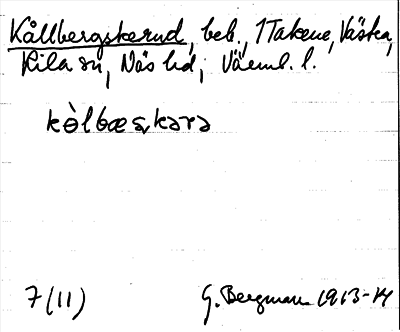 Kållbergskerud, beb., 1 Takene, Västra,
Kila sn, Näs hd, Värml. l.
kòlbæṣkərə
7(11) G. Bergman 1913-14